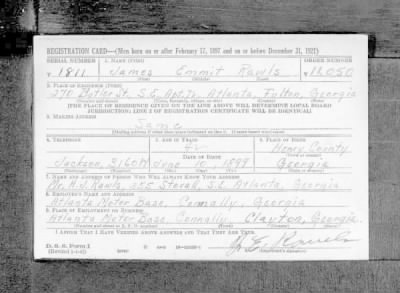 REGISTRATION CARD—(Men born on or after February 17, 1897 and on or before December 31, 1921)
SERIAL NUMBER 1. NAME (Print) ORDER NUMBER
T 1811 James Emmit Rawls 11,050
(First) (Middle) (Last)
2. PLACE OF RESIDENCE (Print)
270 Butler St. S.E. Apt. IV, Atlanta, Fulton, Georgia
(Number and street) (Town, township, village, or city) (County) (State)
[THE PLACE OF RESIDENCE GIVEN ON THE LINE ABOVE WILL DETERMINE LOCAL BOARD
JURISDICTION; LINE 2 OF REGISTRATION CERTIFICATE WILL BE IDENTICAL]
3. MAILING ADDRESS
Same
[Mailing address if other than place indicated on line 2. If same insert word same]
4. TELEPHONE 5. AGE IN YEARS 6. PLACE OF BIRTH
42 Henry County
DATE OF BIRTH (Town or county)
Jackson, 2160M June 10, 1899 Georgia
(Exchange) (Number) (Mo.) (Day) (Yr.) (State or country)
7. NAME AND ADDRESS OF PERSON WHO WILL ALWAYS KNOW YOUR ADDRESS
Mr. A.J. Rawls, 255 Stovall, S.E. Atlanta, Georgia
8. EMPLOYER'S NAME AND ADDRESS
Atlanta Motor Base, Connally, Georgia
9. PLACE OF EMPLOYMENT OR BUSINESS
Atlanta Motor Base, Connally, Clayton, Georgia
(Number and street or R. F. D. number) (Town) (County) (State)
I AFFIRM THAT I HAVE VERIFIED ABOVE ANSWERS AND THAT THEY ARE TRUE.
D. S. S. Form 1
(Revised 1-1-42) (over) J. E. Rawls
(Registrant's signature)